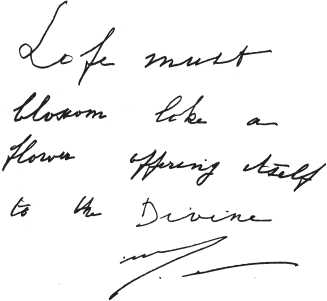 Life must
blossom like a
flower offering itself
to the Divine